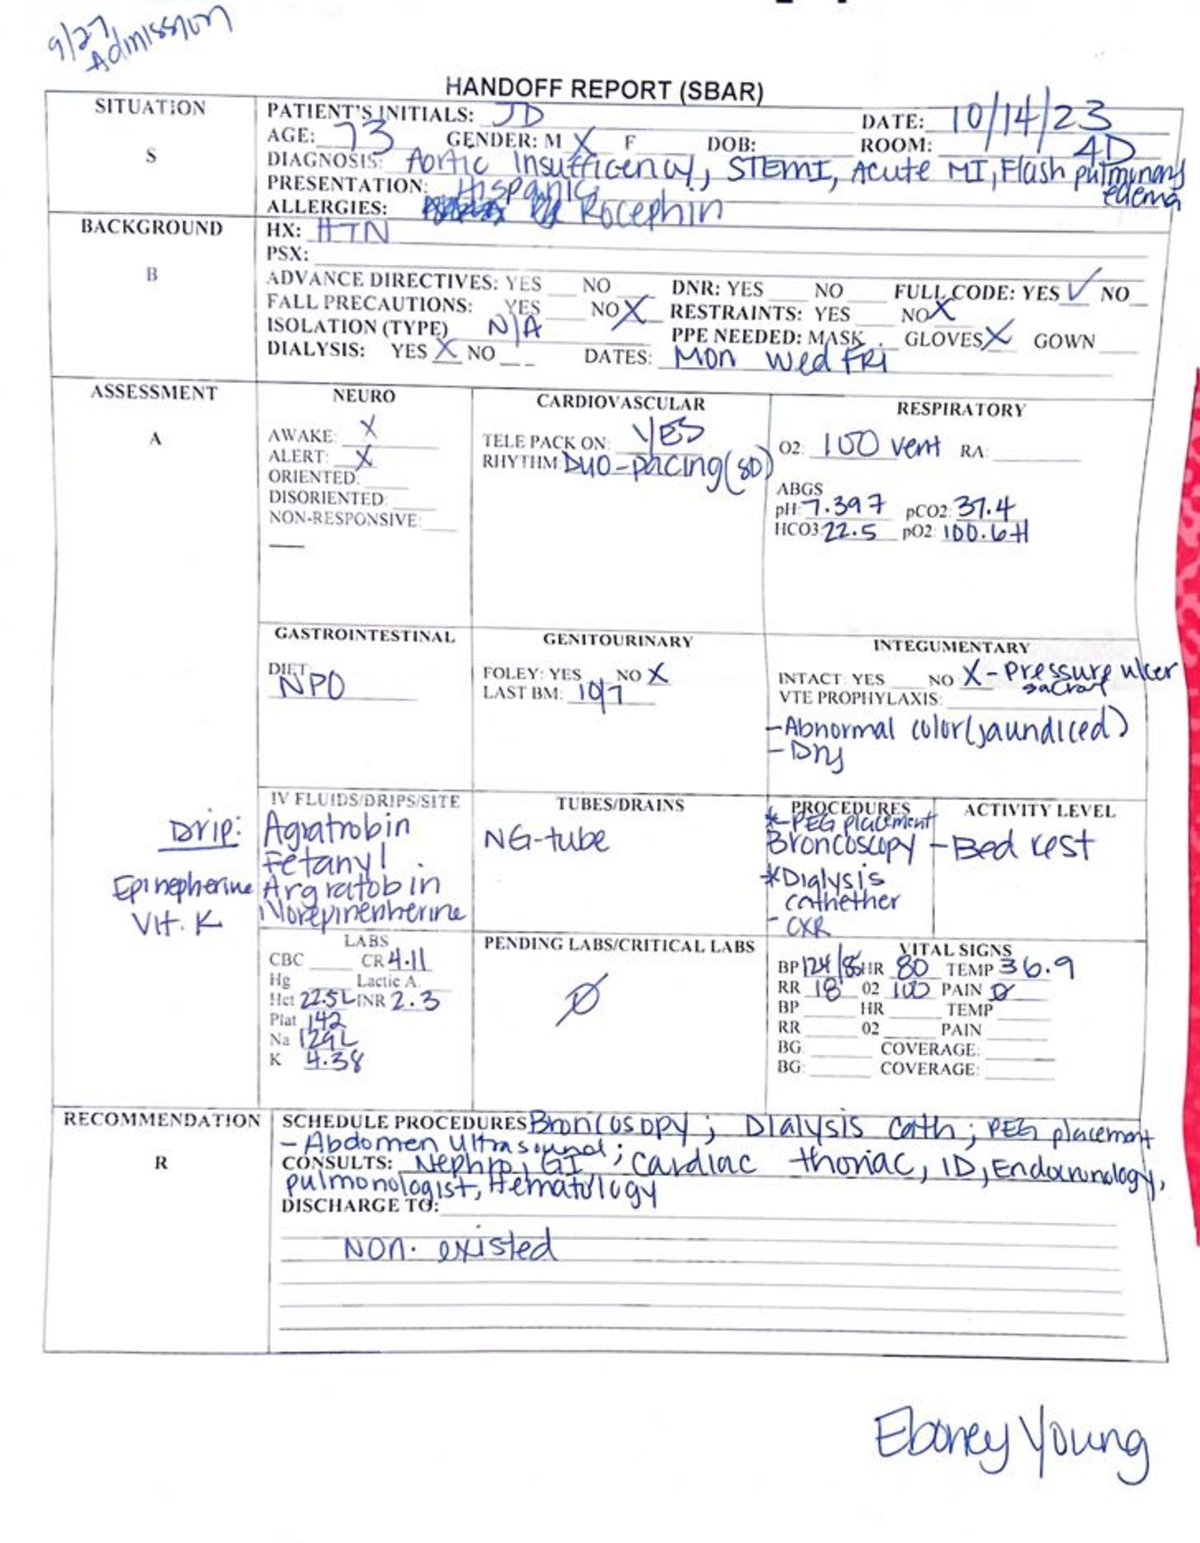 9/27
Admission
HANDOFF REPORT (SBAR)
SITUATION
S
PATIENT'S INITIALS: JD DATE: 10/14/23
AGE: 73 GENDER: M X F DOB: ROOM: 4D
DIAGNOSIS: Aortic Insufficency, STEMI, Acute MI, Flash pulmonary edema
PRESENTATION: Hispanic
ALLERGIES: Rocephin
BACKGROUND
B
HX: HTN
PSX:
ADVANCE DIRECTIVES: YES NO DNR: YES NO FULL CODE: YES ✓ NO
FALL PRECAUTIONS: YES NO X RESTRAINTS: YES NO X
ISOLATION (TYPE) N/A PPE NEEDED: MASK GLOVES X GOWN
DIALYSIS: YES X NO DATES: Mon Wed FRI
ASSESSMENT
A
NEURO
AWAKE: X
ALERT: X
ORIENTED:
DISORIENTED:
NON-RESPONSIVE:
CARDIOVASCULAR
TELE PACK ON: YES
RHYTHM: Duo-pacing (80)
RESPIRATORY
O2: 100 vent RA:
ABGS
pH: 7.397 pCO2: 37.4
HCO3: 22.5 pO2: 100.6H
GASTROINTESTINAL
DIET:
NPO
GENITOURINARY
FOLEY: YES NO X
LAST BM: 10/7
INTEGUMENTARY
INTACT: YES NO X - Pressure ulcer
sacral
VTE PROPHYLAXIS:
- Abnormal color (jaundiced)
- Dry
Drip:
Epinepherine
Vit. K
IV FLUIDS/DRIPS/SITE
Agratrobin
Fetanyl
Argratobin
Norepinepherine
TUBES/DRAINS
NG-tube
PROCEDURES
* - PEG placement
Broncoscopy
* Dialysis
cathether
- CXR
ACTIVITY LEVEL
- Bed rest
LABS
CBC CR 4.11
Hg Lactic A.
Hct 22.5L INR 2.3
Plat 142
Na 129L
K 4.38
PENDING LABS/CRITICAL LABS
Ø
VITAL SIGNS
BP 124/85 HR 80 TEMP 36.9
RR 18 02 100 PAIN Ø
BP HR TEMP
RR 02 PAIN
BG: COVERAGE:
BG: COVERAGE:
RECOMMENDATION
R
SCHEDULE PROCEDURES Broncosopy; Dialysis cath; PEG placement
- Abdomen Ultrasound;
CONSULTS: Nephro, GI; cardiac thoriac, ID, Endocrunology,
pulmonologist, Hematology
DISCHARGE TO:
Non. existed
Eboney Young